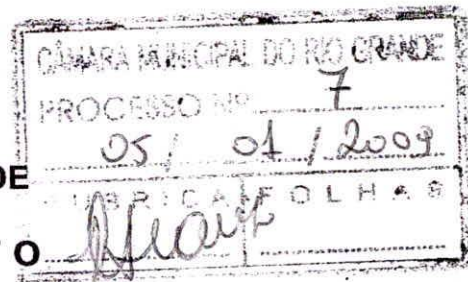 CÂMARA MUNICIPAL DO RIO GRANDE
PROCESSO Nº 7
05 / 01 / 2009
DE
RUBRICA FOLHAS
O